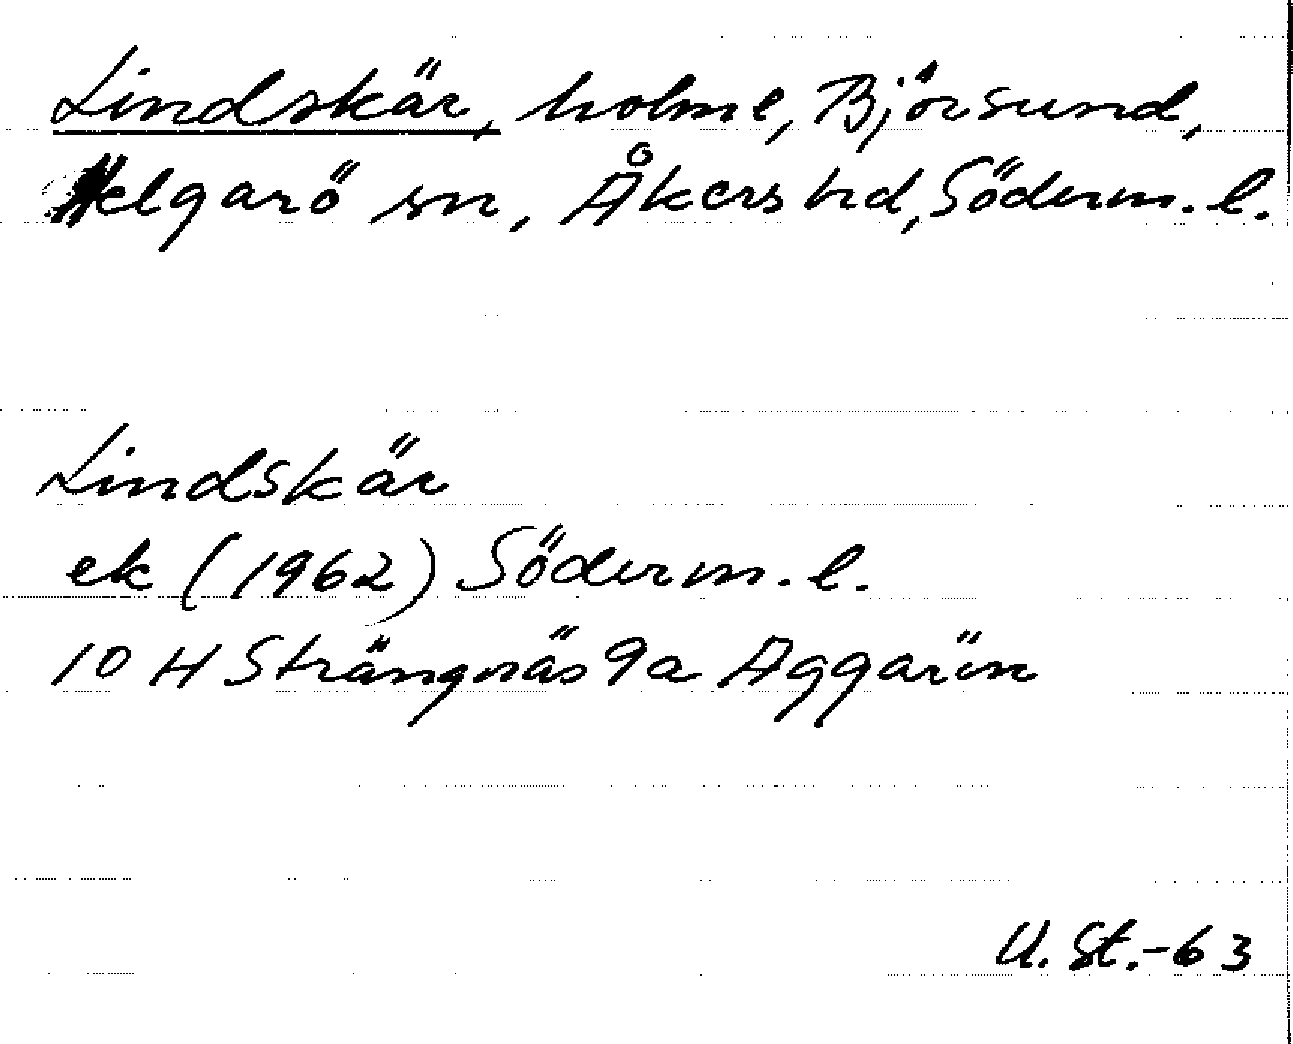 Lindskär, holme, Björsund,
Helgarö sn, Åkers hd, Söderm. l.
Lindskär
ek (1962) Söderm. l.
10 H Strängnäs 9a Aggarön
U. St. -63